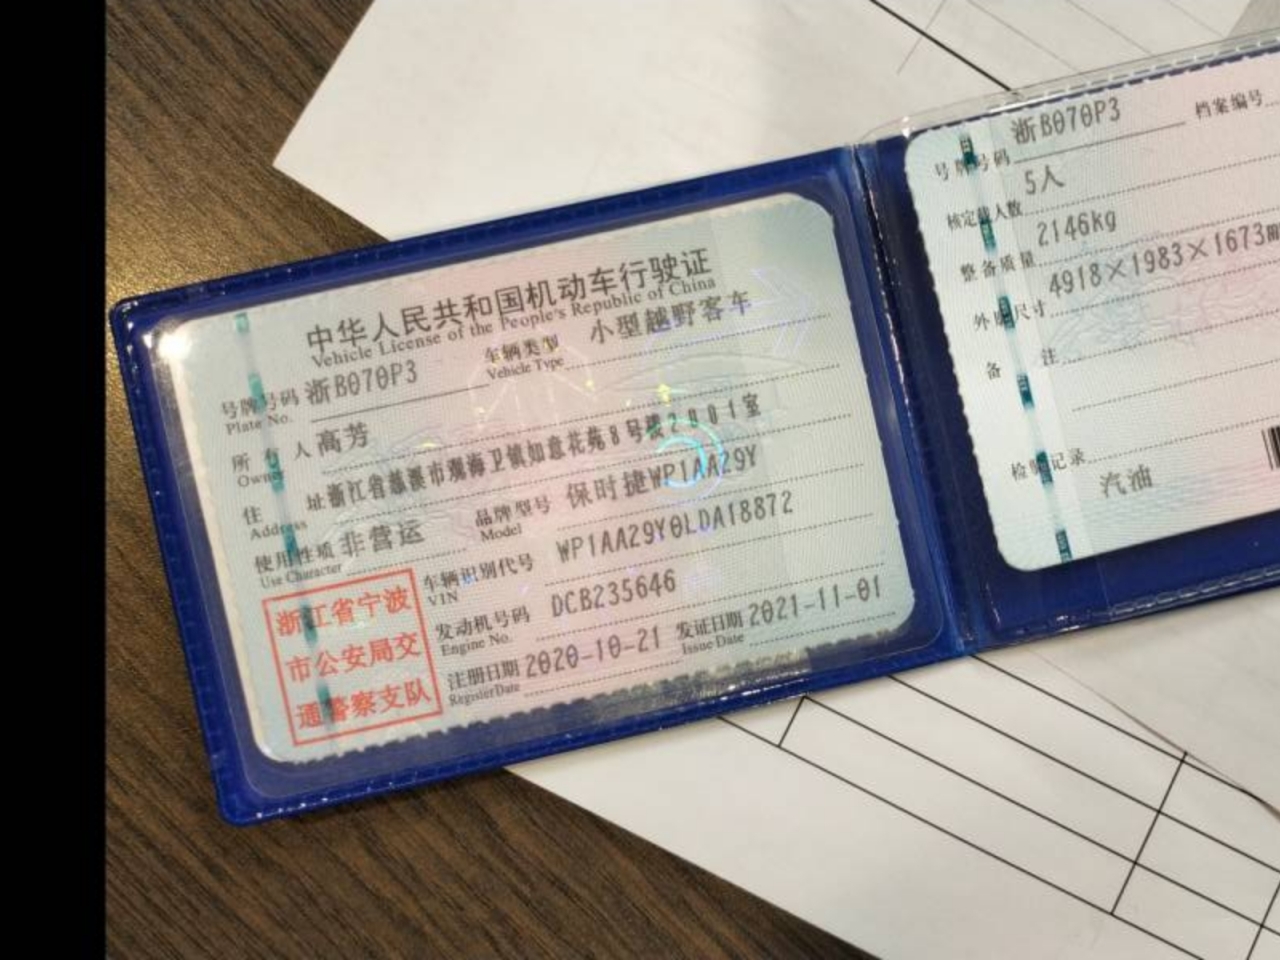 中华人民共和国机动车行驶证
Vehicle License of the People's Republic of China
号牌号码 浙B070P3 车辆类型 小型越野客车
Plate No. Vehicle Type
所有人 高芳
Owner
住址 浙江省慈溪市观海卫镇如意花苑8号楼2001室
Address
使用性质 非营运 品牌型号 保时捷WP1AA29Y
Use Character Model
车辆识别代号 WP1AA29Y0LDA18872
VIN
发动机号码 DCB235646
Engine No.
注册日期 2020-10-21 发证日期 2021-11-01
Register Date Issue Date
浙江省宁波
市公安局交
通警察支队
号牌号码 浙B070P3 档案编号
核定载人数 5人
整备质量 2146kg
外廓尺寸 4918×1983×1673
备注
检验记录
汽油